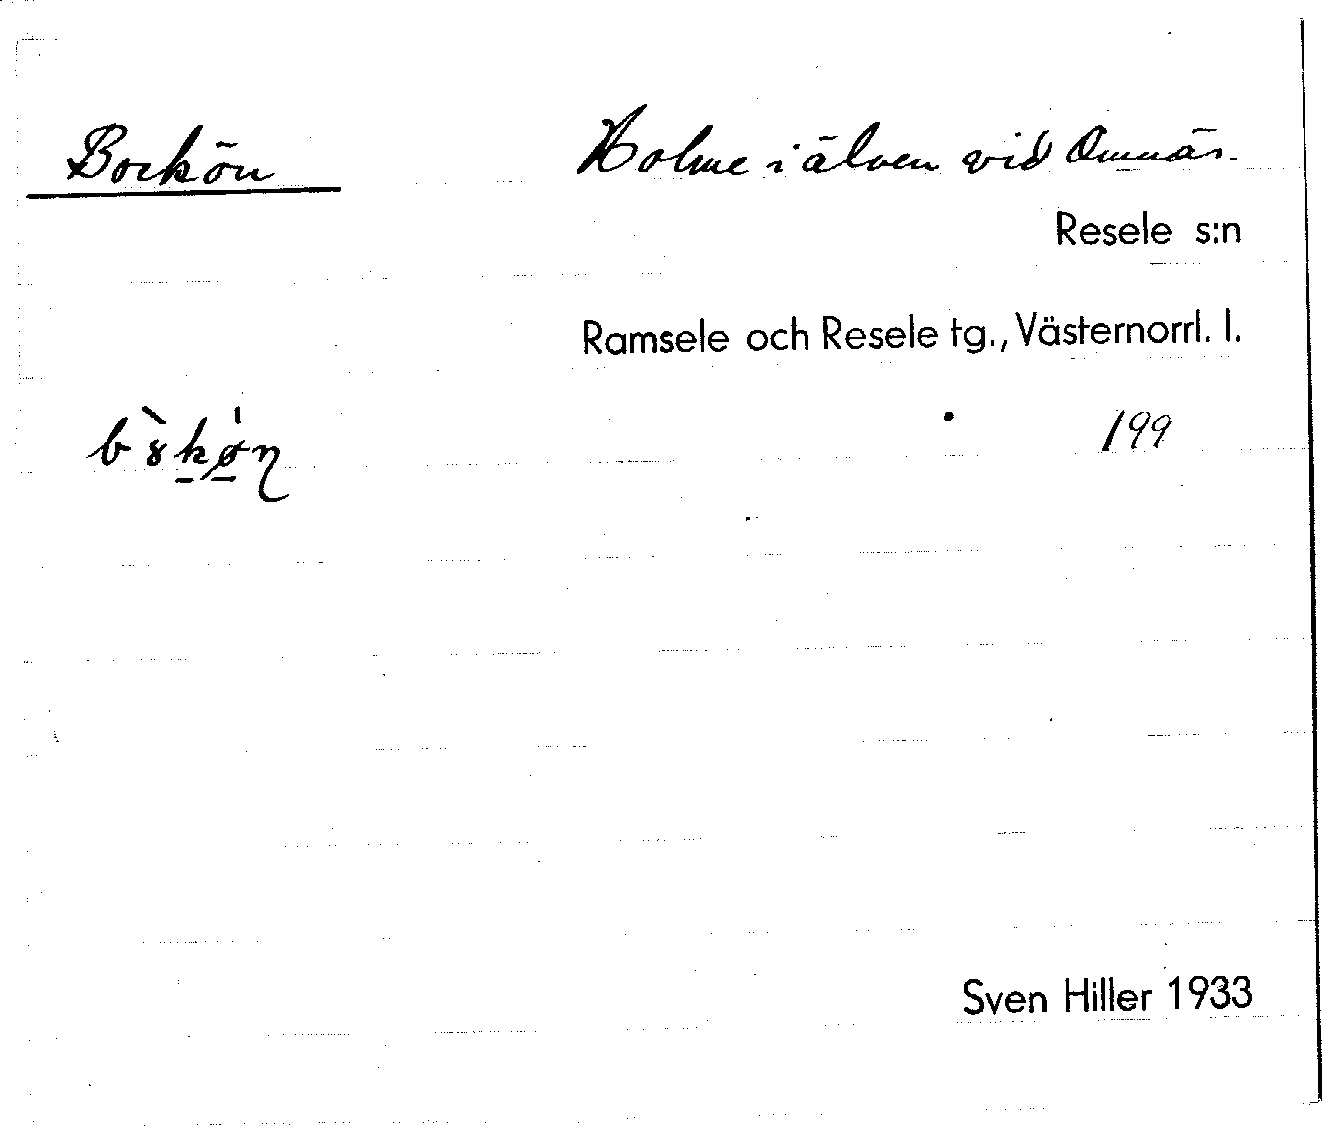 Bockön Holme i älven vid Omnäs.
Resele s:n
Ramsele och Resele tg., Västernorrl. l.
199
Sven Hiller 1933